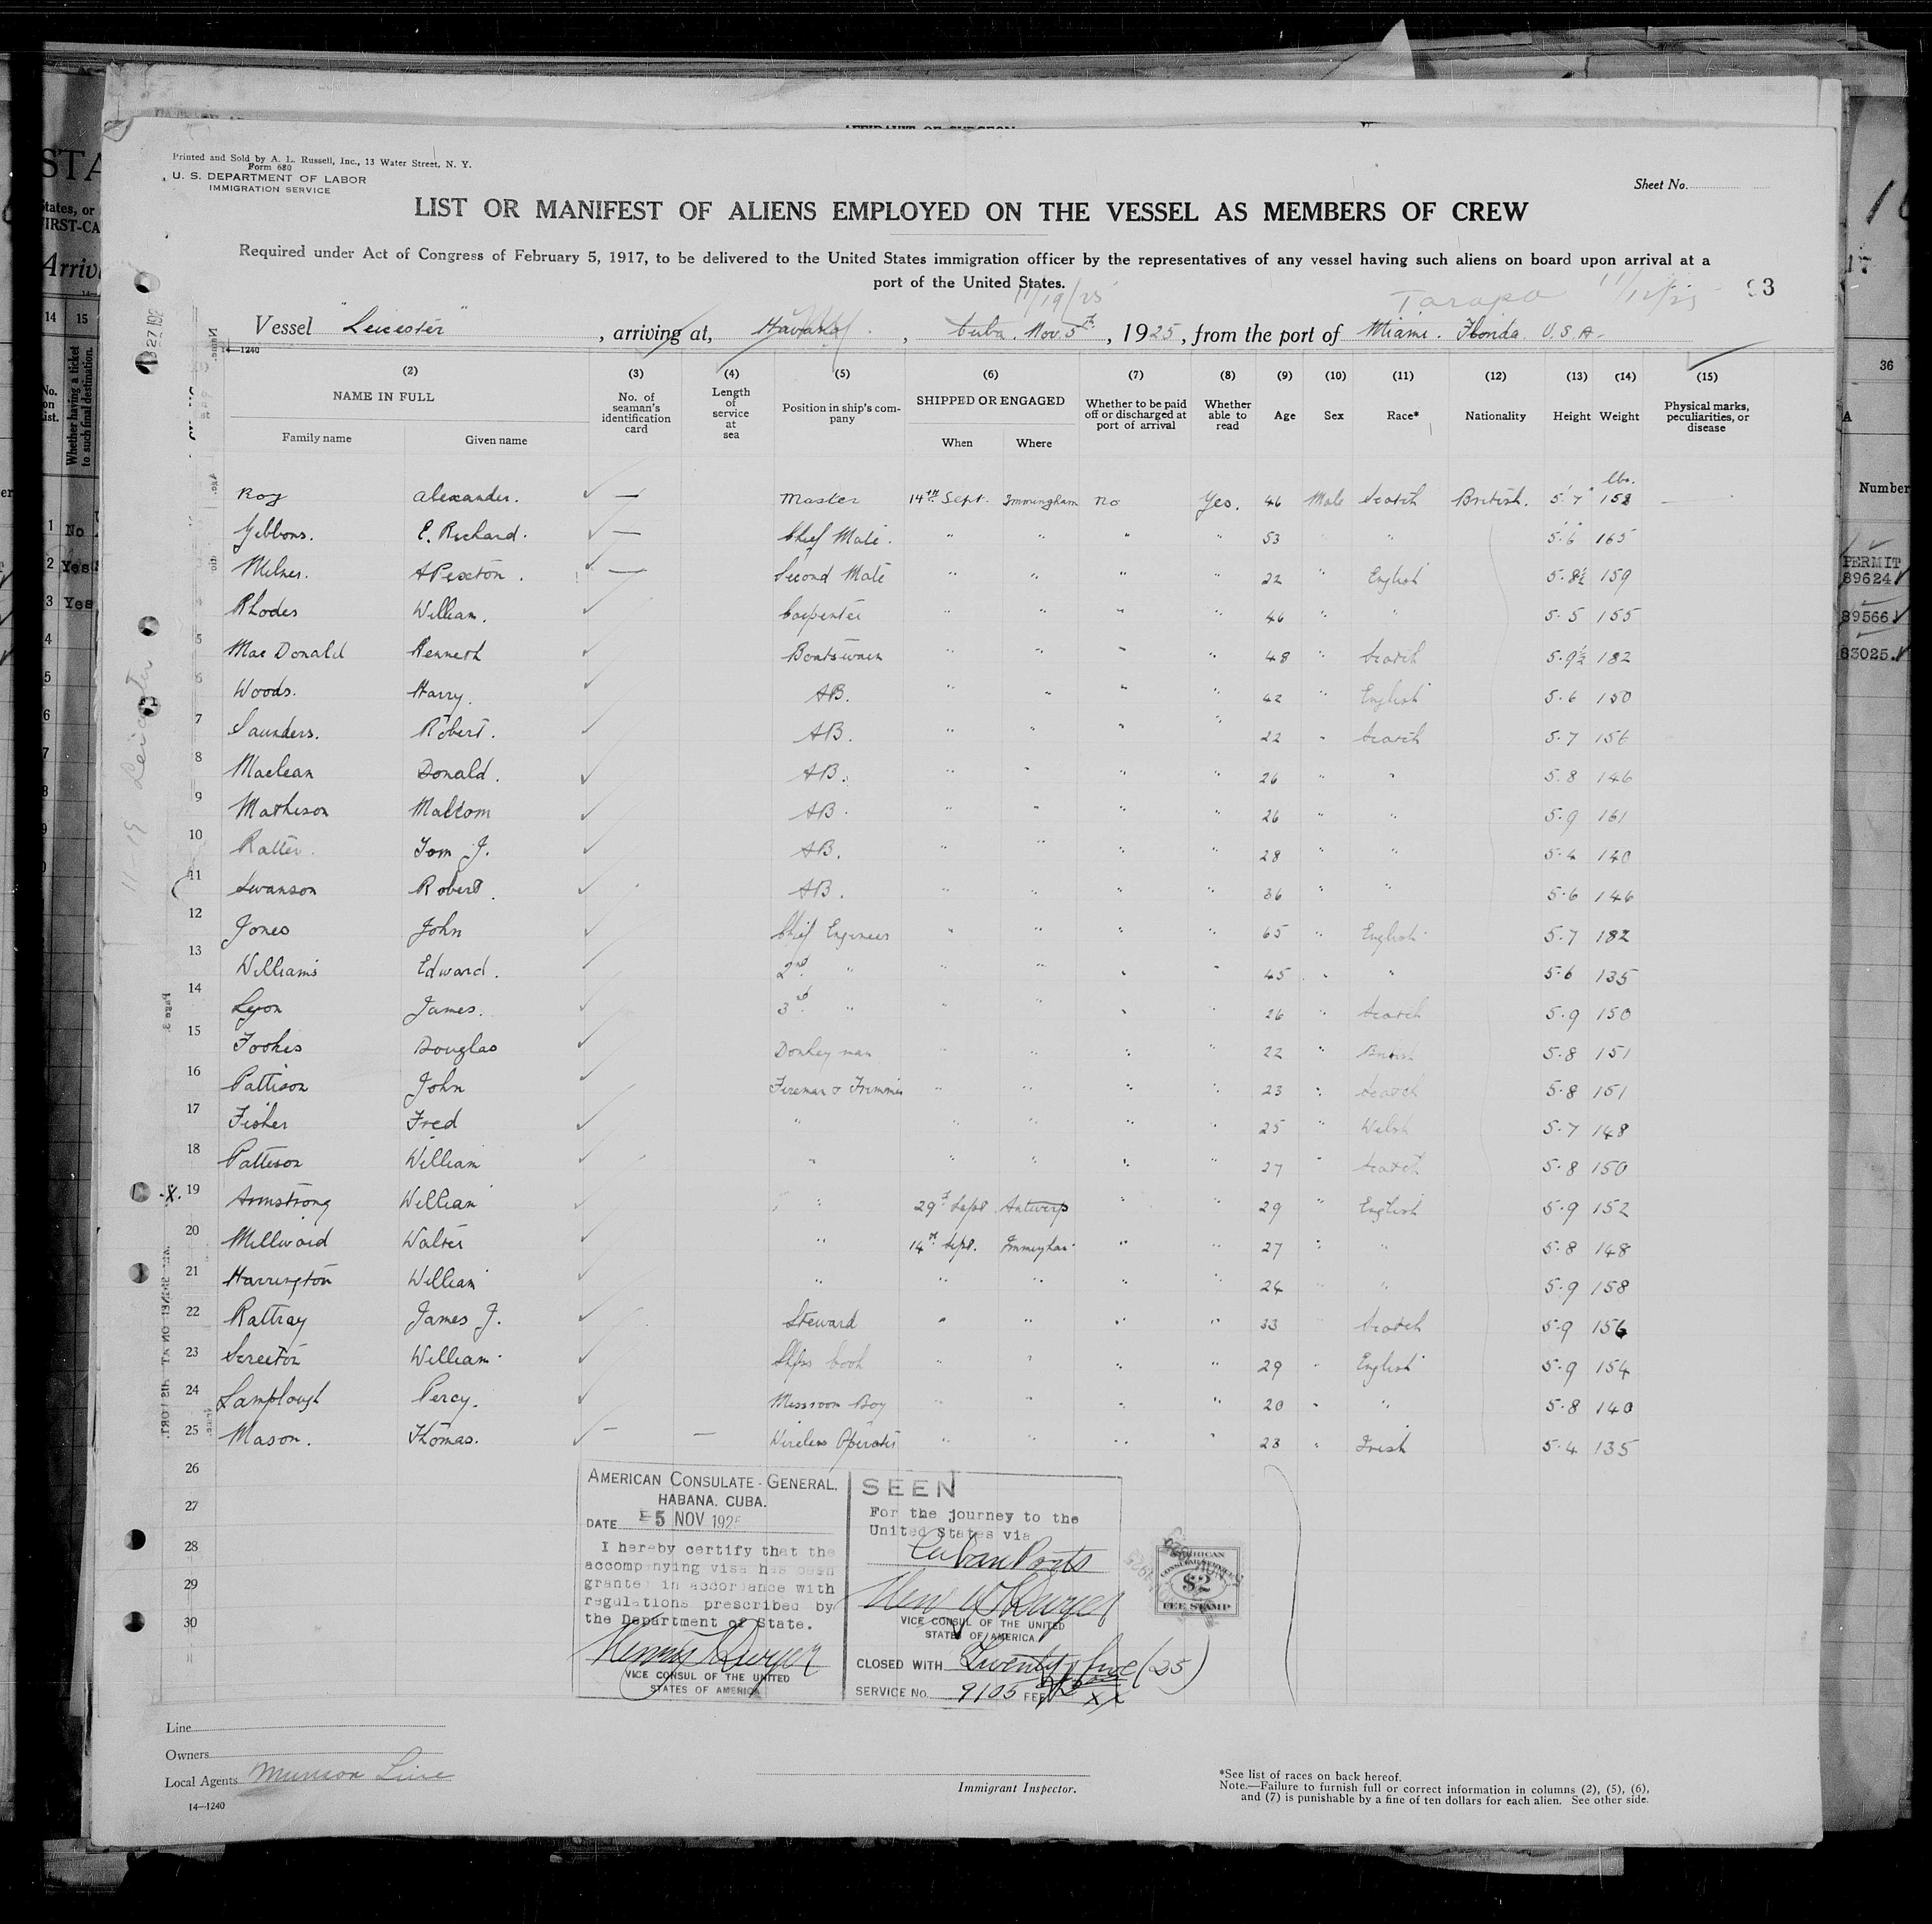 AFFIDAVIT OF SURGEON
Printed and Sold by A. L. Russell, Inc., 13 Water Street, N. Y.
Form 680
U. S. DEPARTMENT OF LABOR
IMMIGRATION SERVICE
Sheet No.
LIST OR MANIFEST OF ALIENS EMPLOYED ON THE VESSEL AS MEMBERS OF CREW
Required under Act of Congress of February 5, 1917, to be delivered to the United States immigration officer by the representatives of any vessel having such aliens on board upon arrival at a
port of the United States.
11/19/25 Tarapa 11/12/25 93
Vessel "Leicester", arriving at, Havana, Cuba. Nov. 5th, 1925, from the port of Miami. Florida. U.S.A.
14—1240
(2) (3) (4) (5) (6) (7) (8) (9) (10) (11) (12) (13) (14) (15)
NAME IN FULL No. of seaman's identification card Length of service at sea Position in ship's company SHIPPED OR ENGAGED Whether to be paid off or discharged at port of arrival Whether able to read Age Sex Race* Nationality Height Weight Physical marks, peculiarities, or disease
Family name Given name When Where
lbs.
Roy Alexander. — Master 14th Sept. Immingham No Yes. 46 Male Scotch British. 5'.7" 158 —
Gibbons. E. Richard. — Chief Mate. " " " " 53 " " 5.6 165
Milner. A Pexton. — Second Mate " " " " 22 " English 5.8½ 159
Rhodes William. Carpenter " " " " 46 " " 5.5 155
5 MacDonald Kenneth Boatswain " " " " 48 " Scotch 5.9½ 182
6 Woods. Harry. AB. " " " " 42 " English 5.6 150
7 Saunders. Robert. AB. " " " " 22 " Scotch 5.7 156
8 Maclean Donald. AB. " " " " 26 " " 5.8 146
9 Matheson Malcom AB. " " " " 26 " " 5.9 161
10 Ratter. Tom J. AB. " " " " 28 " " 5.4 140
11 Swanson Robert. AB. " " " " 36 " " 5.6 146
12 Jones John Chief Engineer " " " " 65 " English 5.7 182
13 Williams Edward. 2nd " " " " " 45 " " 5.6 135
14 Lyon James. 3rd " " " " " 26 " Scotch 5.9 150
15 Fookes Douglas Donkey man " " " " 22 " British 5.8 151
16 Pattison John Fireman & Trimmer " " " " 23 " Scotch 5.8 151
17 Fisher Fred " " " " " 25 " Welsh 5.7 148
18 Patteson William " " " " " 27 " Scotch 5.8 150
X. 19 Armstrong William " 29th Sept Antwerp " " 29 " English 5.9 152
20 Millward Walter " 14th Sept. Immingham " " 27 " " 5.8 148
21 Harrington William " " " " " 24 " " 5.9 158
22 Rattray James J. Steward " " " " 33 " Scotch 5.9 156
23 Screeton William Ships Cook " " " " 29 " English 5.9 154
24 Lamplough Percy. Messroom Boy " " " " 20 " " 5.8 140
25 Mason. Thomas. — — Wireless Operator " " " " 23 " Irish 5.4 135
26
27
28
29
30
AMERICAN CONSULATE-GENERAL,
HABANA, CUBA.
DATE 5 NOV 1925
I hereby certify that the
accompanying visa has been
granted in accordance with
regulations prescribed by
the Department of State.
VICE CONSUL OF THE UNITED
STATES OF AMERICA
SEEN
For the journey to the
United States via
Cuban Ports
VICE CONSUL OF THE UNITED
STATES OF AMERICA
CLOSED WITH Twenty five (25)
SERVICE No. 9105 FEE
AMERICAN
CONSULAR SERVICE
$2
FEE STAMP
11-19 Leicester
Page 3.
Line
Owners
Local Agents Munson Line
14—1240
Immigrant Inspector.
*See list of races on back hereof.
Note.—Failure to furnish full or correct information in columns (2), (5), (6),
and (7) is punishable by a fine of ten dollars for each alien. See other side.
14 15
Whether having a ticket
to such final destination.
No
Yes
Yes
36
Number
PERMIT
89624
89566
83025